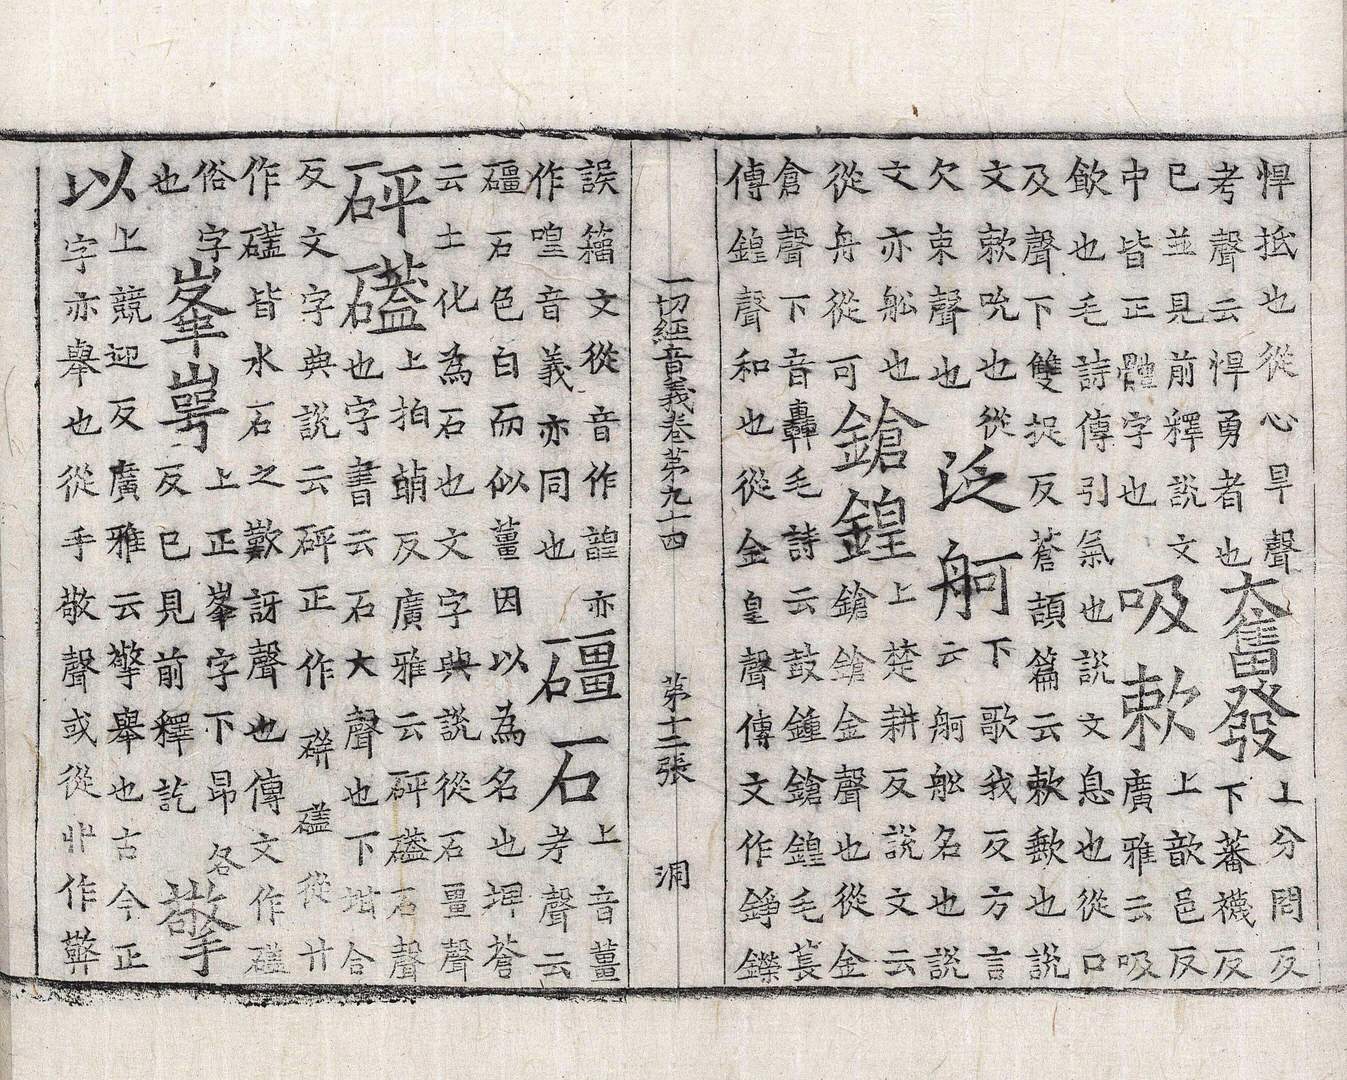 悍抵也從心旱聲
考聲云悍勇者也
奮發
上分問反
下蕃襪反
已並見前釋說文
中皆正體字也
吸欶
上歆邑反
廣雅云吸
飲也毛詩傳引氣也說文息也從口
及聲下雙捉反蒼頡篇云欶歎也說
文欶吮也從
欠束聲也
泛舸
下歌我反方言
云舸舩名也說
文亦舩也
從舟從可
鎗鍠
上楚耕反說文云
鎗鎗金聲也從金
倉聲下音轟毛詩云鼓鍾鎗鍠毛萇
傳鍠聲和也從金皇聲傳文作錚鑅
一切經音義卷第九十四 第十二張 洞
誤籀文從音作諻亦
作喤音義亦同也
礓石
上音薑
考聲云
礓石色白而似薑因以為名也埤蒼
云土化為石也文字典說從石畺聲
砰礚
上拍萌反廣雅云砰礚石聲
也字書云石大聲也下堪合
反文字典說云砰正作 礚從廾
作礚皆水石之歎訝聲也傳文作礚
俗字
也
峯崿
上正峯字下昂各
反已見前釋訖
擎
以
上競迎反廣雅云擎舉也古今正
字亦舉也從手敬聲或從廾作